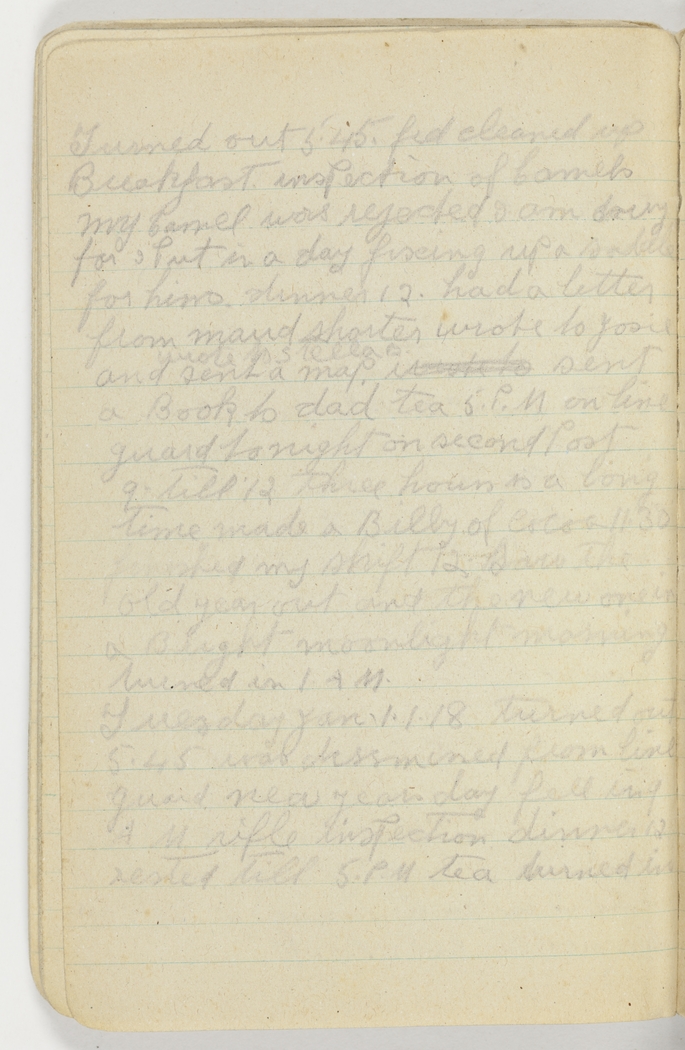 Turned out 5.45. fed cleaned up
Breakfast. inspection of Camels
my Camel was rejected I am sorry
for I Put in a day fixing up a sadle
for him. dinner 12. had a letter
from maud shorter wrote to Josie
wrote to Stella
and sent a map sent
a Book to dad tea 5.P.M on line
guard tonight on second Post
9. till 12 three hours is a long
time made a Billy of Cocoa 11 30
finished my shift 12 Saw the
old year out and the new one in
a Bright moonlight morning
turned in 1 A M.
Tuesday Jan. 1.1.18 turned out
5.45 was dissmined from line
guard new years day fall in 9
A M rifle inspection dinner 12
rested till 5.P.M tea turned in